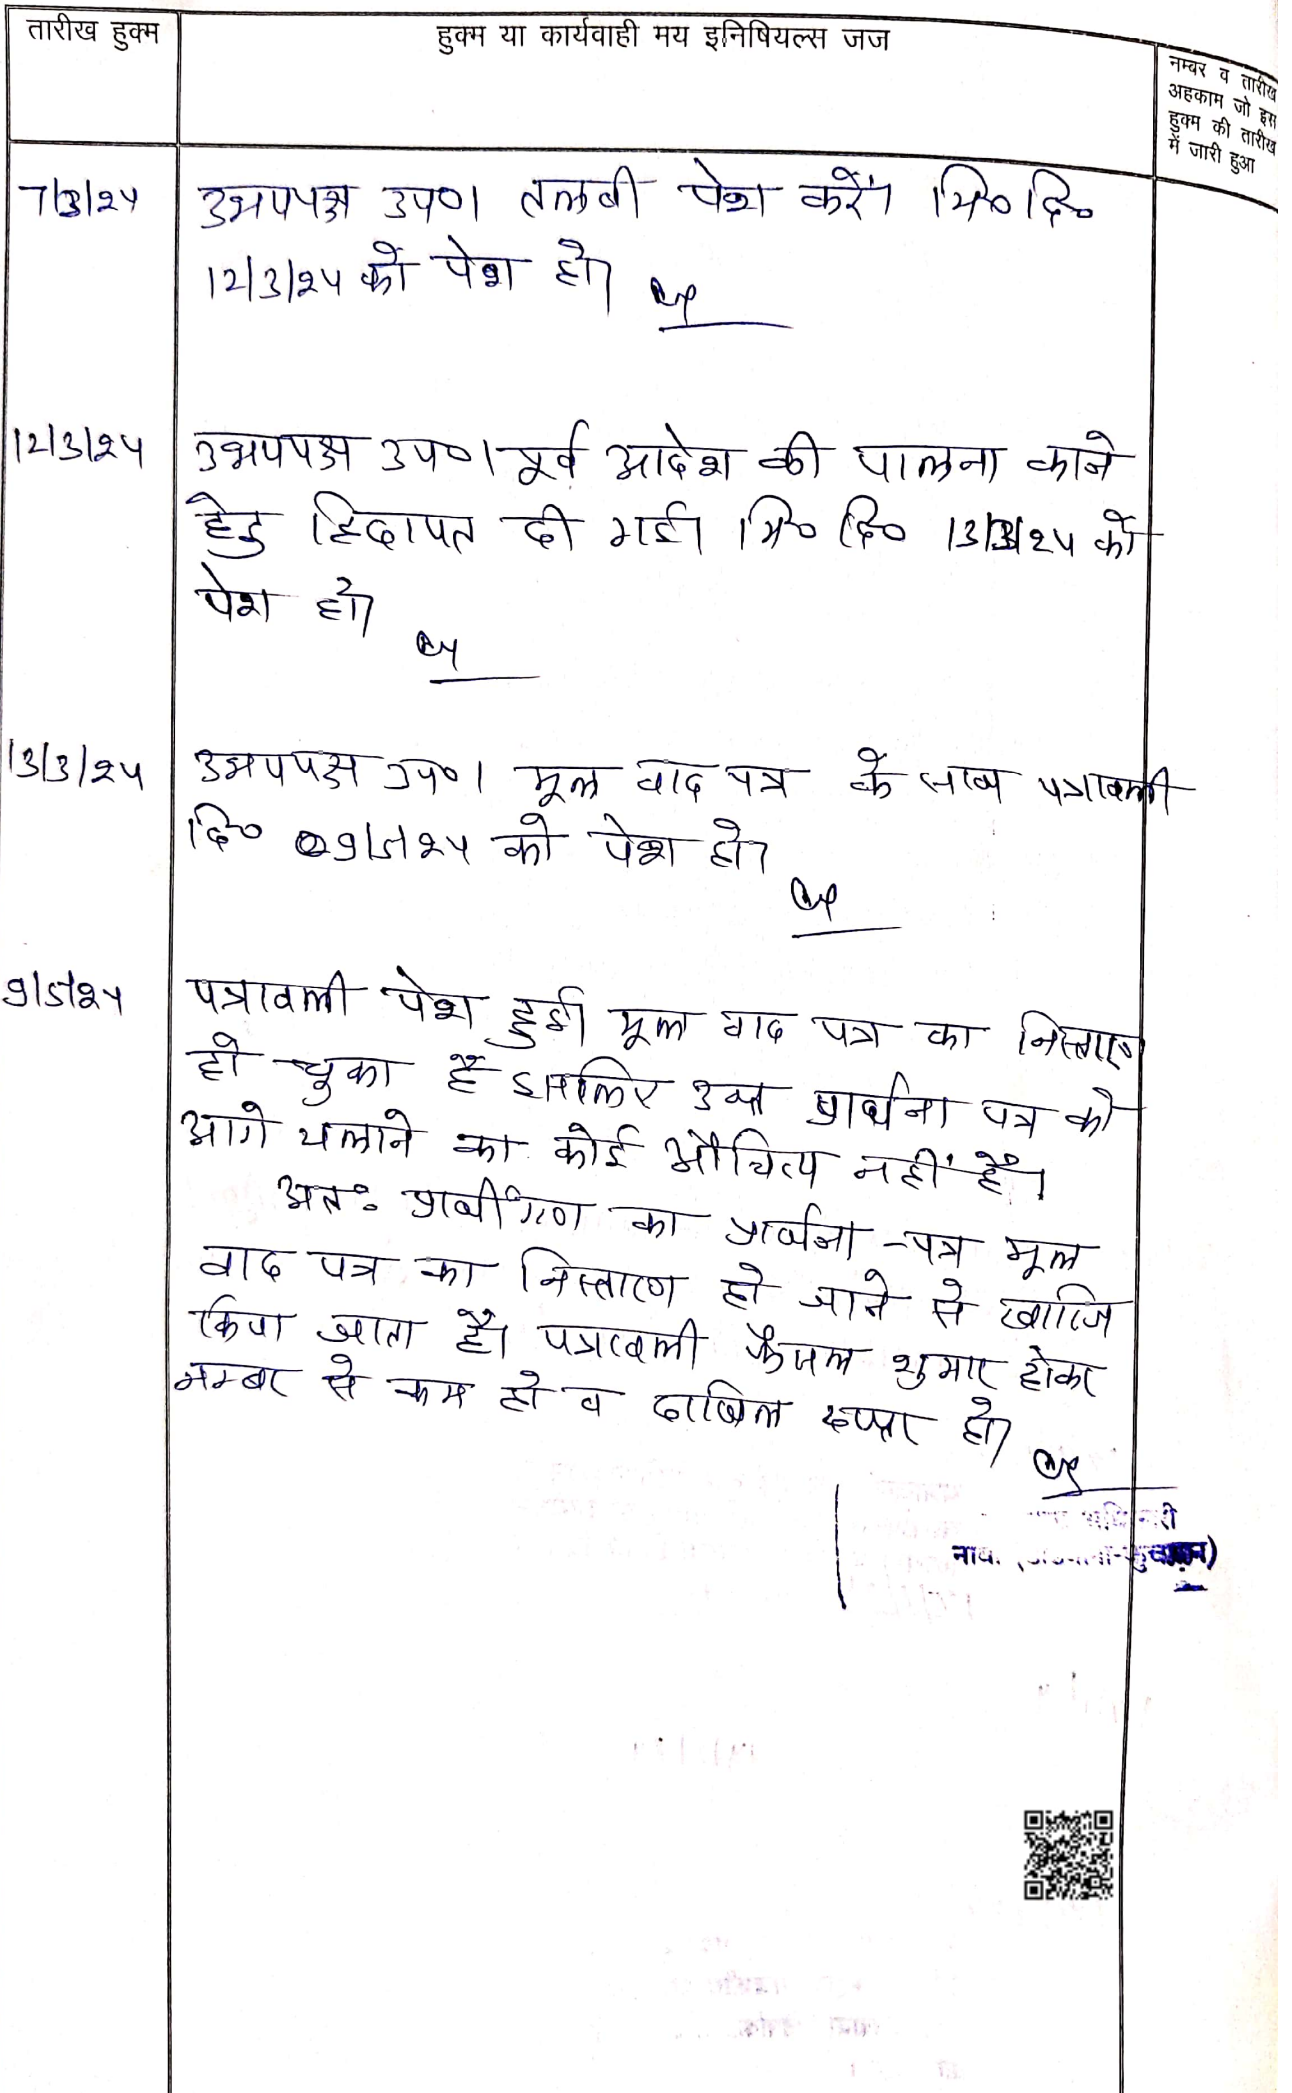 तारीख हुक्म
हुक्म या कार्यवाही मय इनिषियल्स जज
नम्बर व तारीख
अहकाम जो इस
हुक्म की तारीख
में जारी हुआ
7/3/24
उभयपक्ष उप०। तलबी पेश करें। मि० दि०
12/3/24 को पेश हो।
12/3/24
उभयपक्ष उप०। पूर्व आदेश की पालना करने
हेतु हिदायत दी गई। मि० दि० 13/3/24 को
पेश हो।
13/3/24
उभयपक्ष उप०। मूल वाद पत्र के साथ पत्रावली
दि० 09/5/24 को पेश हो।
9/5/24
पत्रावली पेश हुई। मूल वाद पत्र का निस्तारण
हो चुका है इसलिए उक्त प्रार्थना पत्र को
आगे चलाने का कोई औचित्य नहीं है।
अतः प्रार्थीगण का प्रार्थना-पत्र मूल
वाद पत्र का निस्तारण हो जाने से खारिज
किया जाता है। पत्रावली फैसल शुमार होकर
नम्बर से कम हो व दाखिल दफ्तर हो।